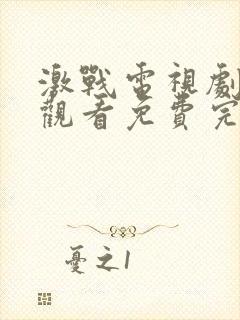 激戰電視劇
觀看免費完
憂之1